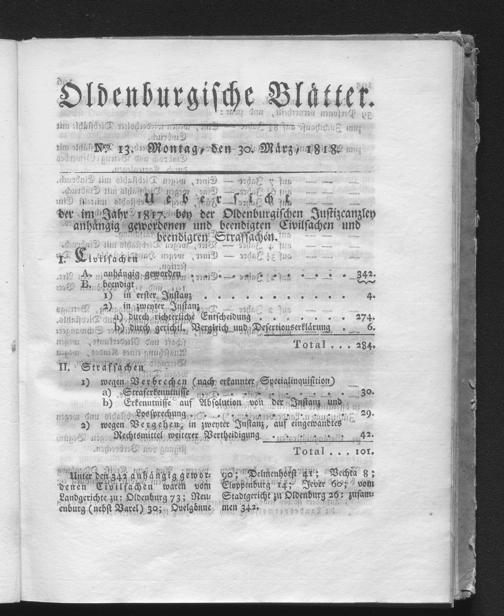 Oldenburgische Blätter.
Nro. 13. Montag, den 30. März, 1818.
Uebersicht
der im Jahr 1817. bey der Oldenburgischen Justizcanzley
anhängig gewordenen und beendigten Civilsachen und
beendigten Strafsachen.
I. Civilsachen
A. anhängig geworden . . . . . . . . . 342.
B. beendigt
1) in erster Instanz . . . . . . . . 4.
2) in zweyter Instanz
a) durch richterliche Entscheidung . . . . . . 274.
b) durch gerichtl. Vergleich und Desertionserklärung . 6.
Total . . . 284.
II. Strafsachen
1) wegen Verbrechen (nach erkannter Specialinquisition)
a) Straferkenntnisse . . . . . . . . 30.
b) Erkenntnisse auf Absolution von der Instanz und
Lossprechung . . . . . . . . . 29.
2) wegen Vergehen, in zweyter Instanz, auf eingewandtes
Rechtsmittel weiterer Vertheidigung . . . . . 42.
Total . . . 101.
Unter den 342 anhängig gewor-
denen Civilsachen waren vom
Landgerichte zu: Oldenburg 73; Neu-
enburg (nebst Varel) 30; Ovelgönne
90; Delmenhorst 41; Vechta 8;
Cloppenburg 14; Jever 60; vom
Stadtgericht zu Oldenburg 26: zusam-
men 342.